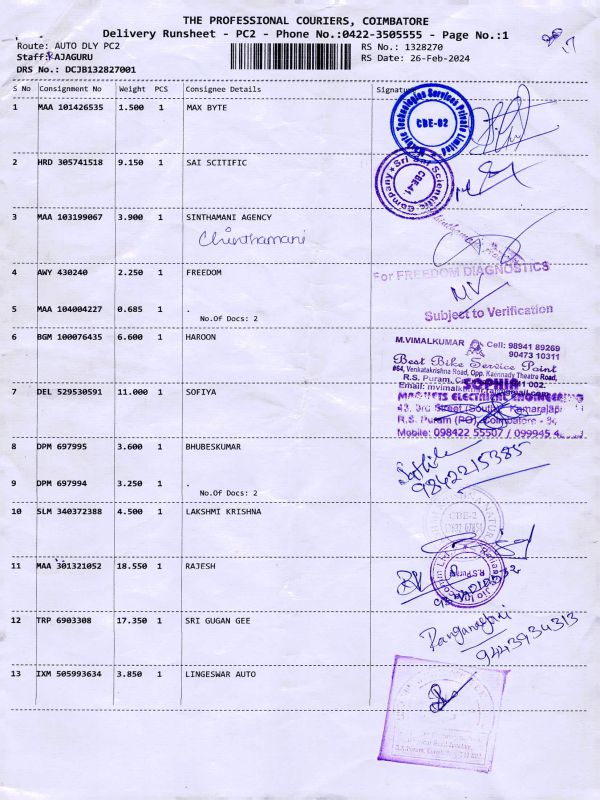 THE PROFESSIONAL COURIERS, COIMBATORE
Delivery Runsheet - PC2 - Phone No.:0422-3505555 - Page No.:1
Route: AUTO DLY PC2
RS No.: 1328270
Staff:RAJAGURU
RS Date: 26-Feb-2024
DRS No.: DCJB132827001
S No Consignment No Weight PCS Consignee Details Signature
1 MAA 101426535 1.500 1 MAX BYTE
Maxbyte Technologies Services Private Limited
CBE-02
2 HRD 305741518 9.150 1 SAI SCITIFIC
Sri Sai Scientific Company
CBE-41
3 MAA 103199067 3.900 1 SINTHAMANI AGENCY
Chinthamani
4 AWY 430240 2.250 1 FREEDOM
For FREEDOM DIAGNOSTICS
5 MAA 104004227 0.685 1 .
No.Of Docs: 2
Subject to Verification
6 BGM 100076435 6.600 1 HAROON
M.VIMALKUMAR Cell: 98941 89269
90473 10311
Best Bike Service Point
#64, Venkatakrishna Road, Opp. Kaennady Theatra Road,
R.S. Puram,
Email:
7 DEL 529530591 11.000 1 SOFIYA
SOPHIA
MAGNETS ELECTRICAL ENGINEERING
43, 3rd Street (South), Kamarajapuram
R.S. Puram (PO), Coimbatore -
Mobile: 098422 55507 / 099945
8 DPM 697995 3.600 1 BHUBESKUMAR
9842215385
9 DPM 697994 3.250 1 .
No.Of Docs: 2
10 SLM 340372388 4.500 1 LAKSHMI KRISHNA
CBE-2
11 MAA 301321052 18.550 1 RAJESH
Reliance Jio Infocomm Ltd
R.S Puram
12 TRP 6903308 17.350 1 SRI GUGAN GEE
9443934313
13 IXM 505993634 3.850 1 LINGESWAR AUTO